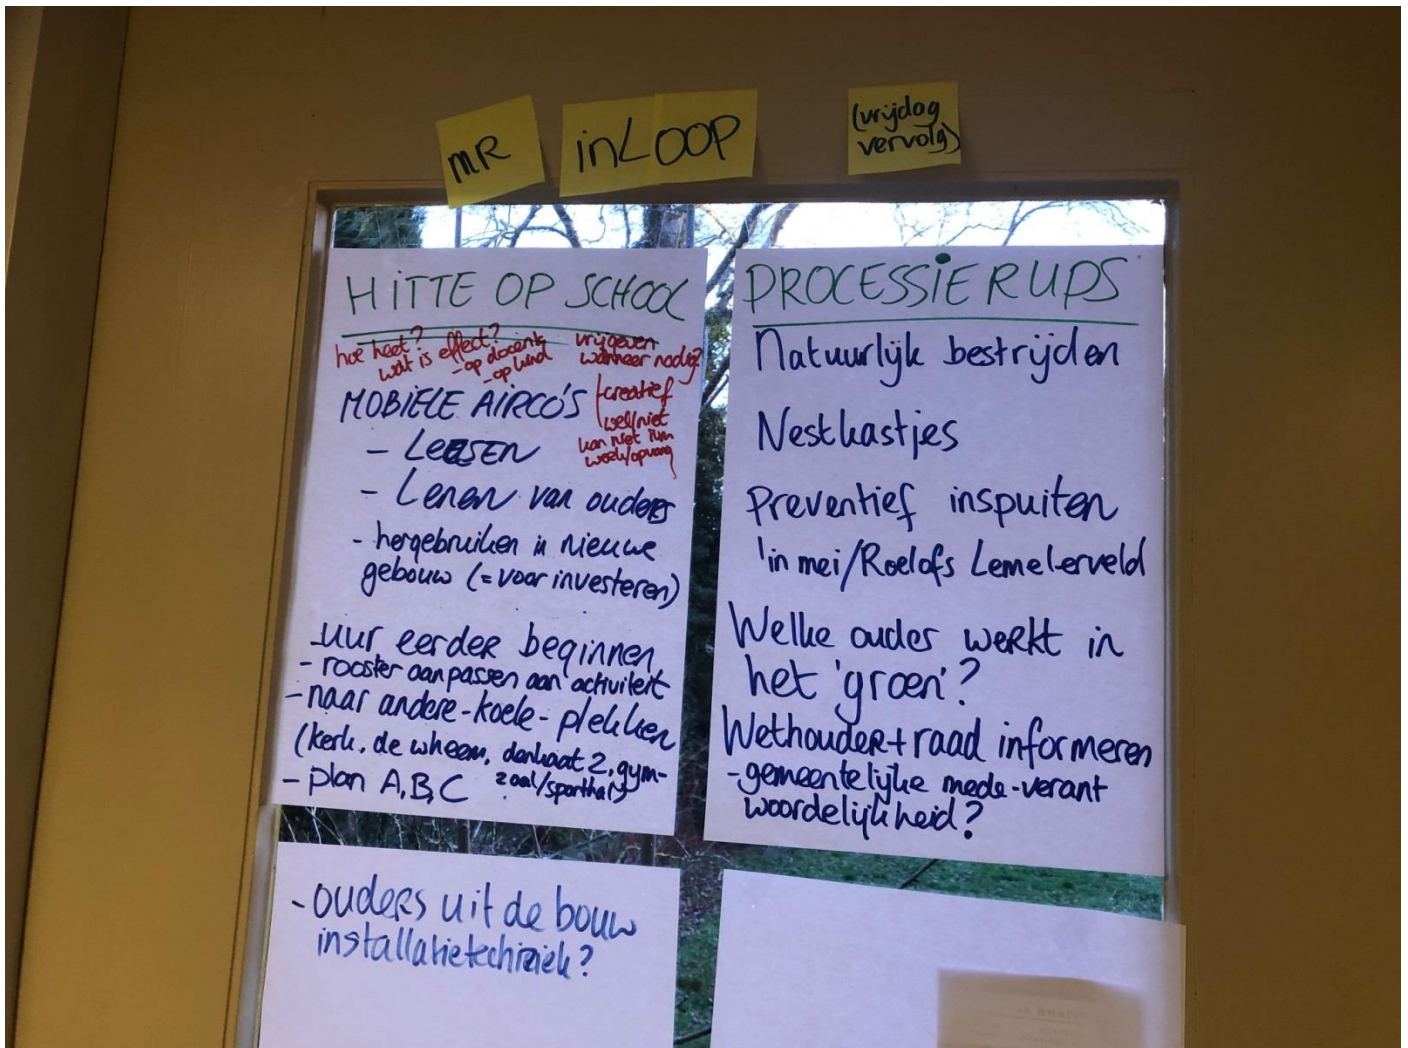 MR inLOOP (vrijdag
vervolg)
HITTE OP SCHOOL
hoe heet?
wat is effect?
- op docent
- op kind
vrijgeven
wanneer nodig?
creatief
wel/niet
kan niet ivm
werk/opvang
MOBIELE AIRCO'S
- LEASEN
- Lenen van ouders
- hergebruiken in nieuwe
gebouw (= voor investeren)
uur eerder beginnen
- rooster aanpassen aan activiteit
- naar andere-koele-plekken
(kerk, de wheem, denkaat 2, gym-
zaal/sporthal)
- plan A, B, C
- ouders uit de bouw
installatietechniek?
PROCESSIERUPS
Natuurlijk bestrijden
Nestkastjes
preventief inspuiten
in mei/Roelofs Lemelerveld
Welke ouder werkt in
het 'groen'?
Wethouder + raad informeren
- gemeentelijke mede-verant
woordelijkheid?